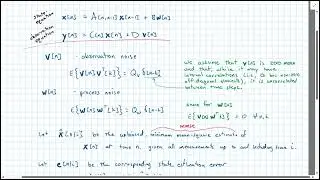 state equation
x[n] = A[n,n-1] x[n-1] + B w[n]
observation equation
y[n] = C[n] x[n] + D v[n]
v[n] - observation noise
E{v[n] v^T[k]} = Q_v δ[n-k]
w[n] - process noise
E{w[n] w^T[k]} = Q_w δ[n-k]
we assume that v[n] is zero mean
and that, while it may have
internal correlations (i.e., Q_v has non-zero
off diagonal elements), it is uncorrelated
between time steps.
same for w[n]
E{v[n] w^T[k]} = 0 ∀n,k
MMSE
Let x̂[n|i] be the unbiased minimum mean-square estimate of
x[n] at time n, given all measurements up to and including time i.
Let e[n|i] be the corresponding state estimation error